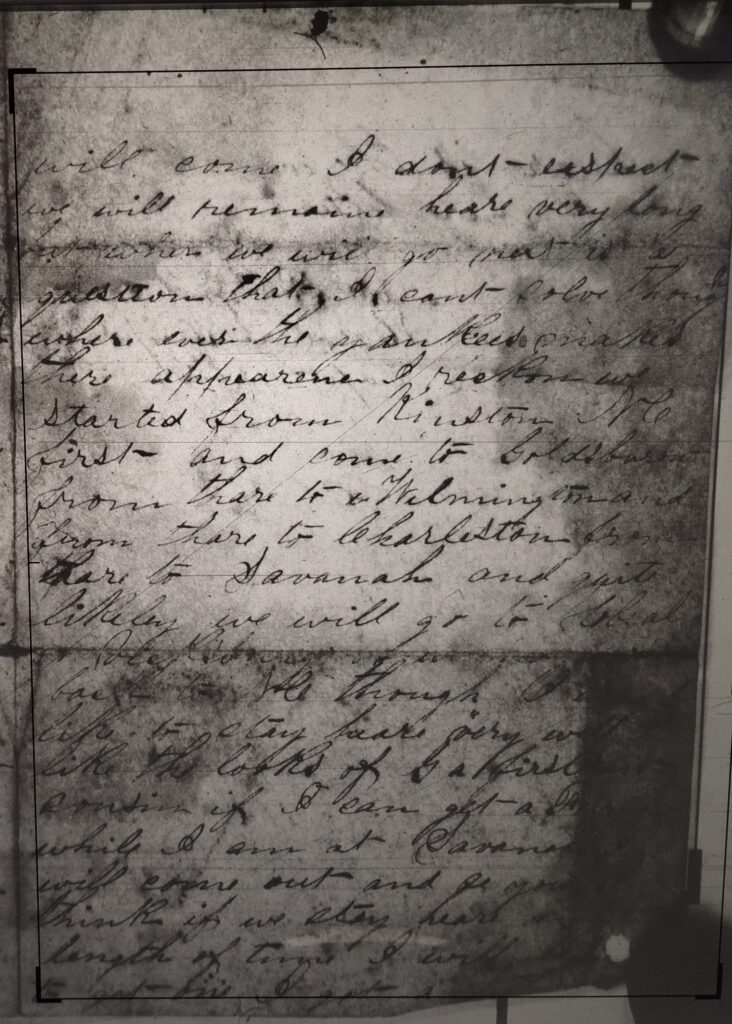 will come I dont exspect
we will remaine heare very long
but wher we will go next is a
question that I cant solve though
where ever the yankees makes
there appearene I reckon we
started from Kinston NC
first and come to Goldsburo
from thare to Wilmington and
from thare to Charleston from
thare to Savanah and quite
likeley we will go to
back to NC though I
like to stay heare very well
like the looks of Ga first
cousin if I can get a
while I am at Savanah
will come out and se you
think if we stay heare
length of time I will
to get one I got a